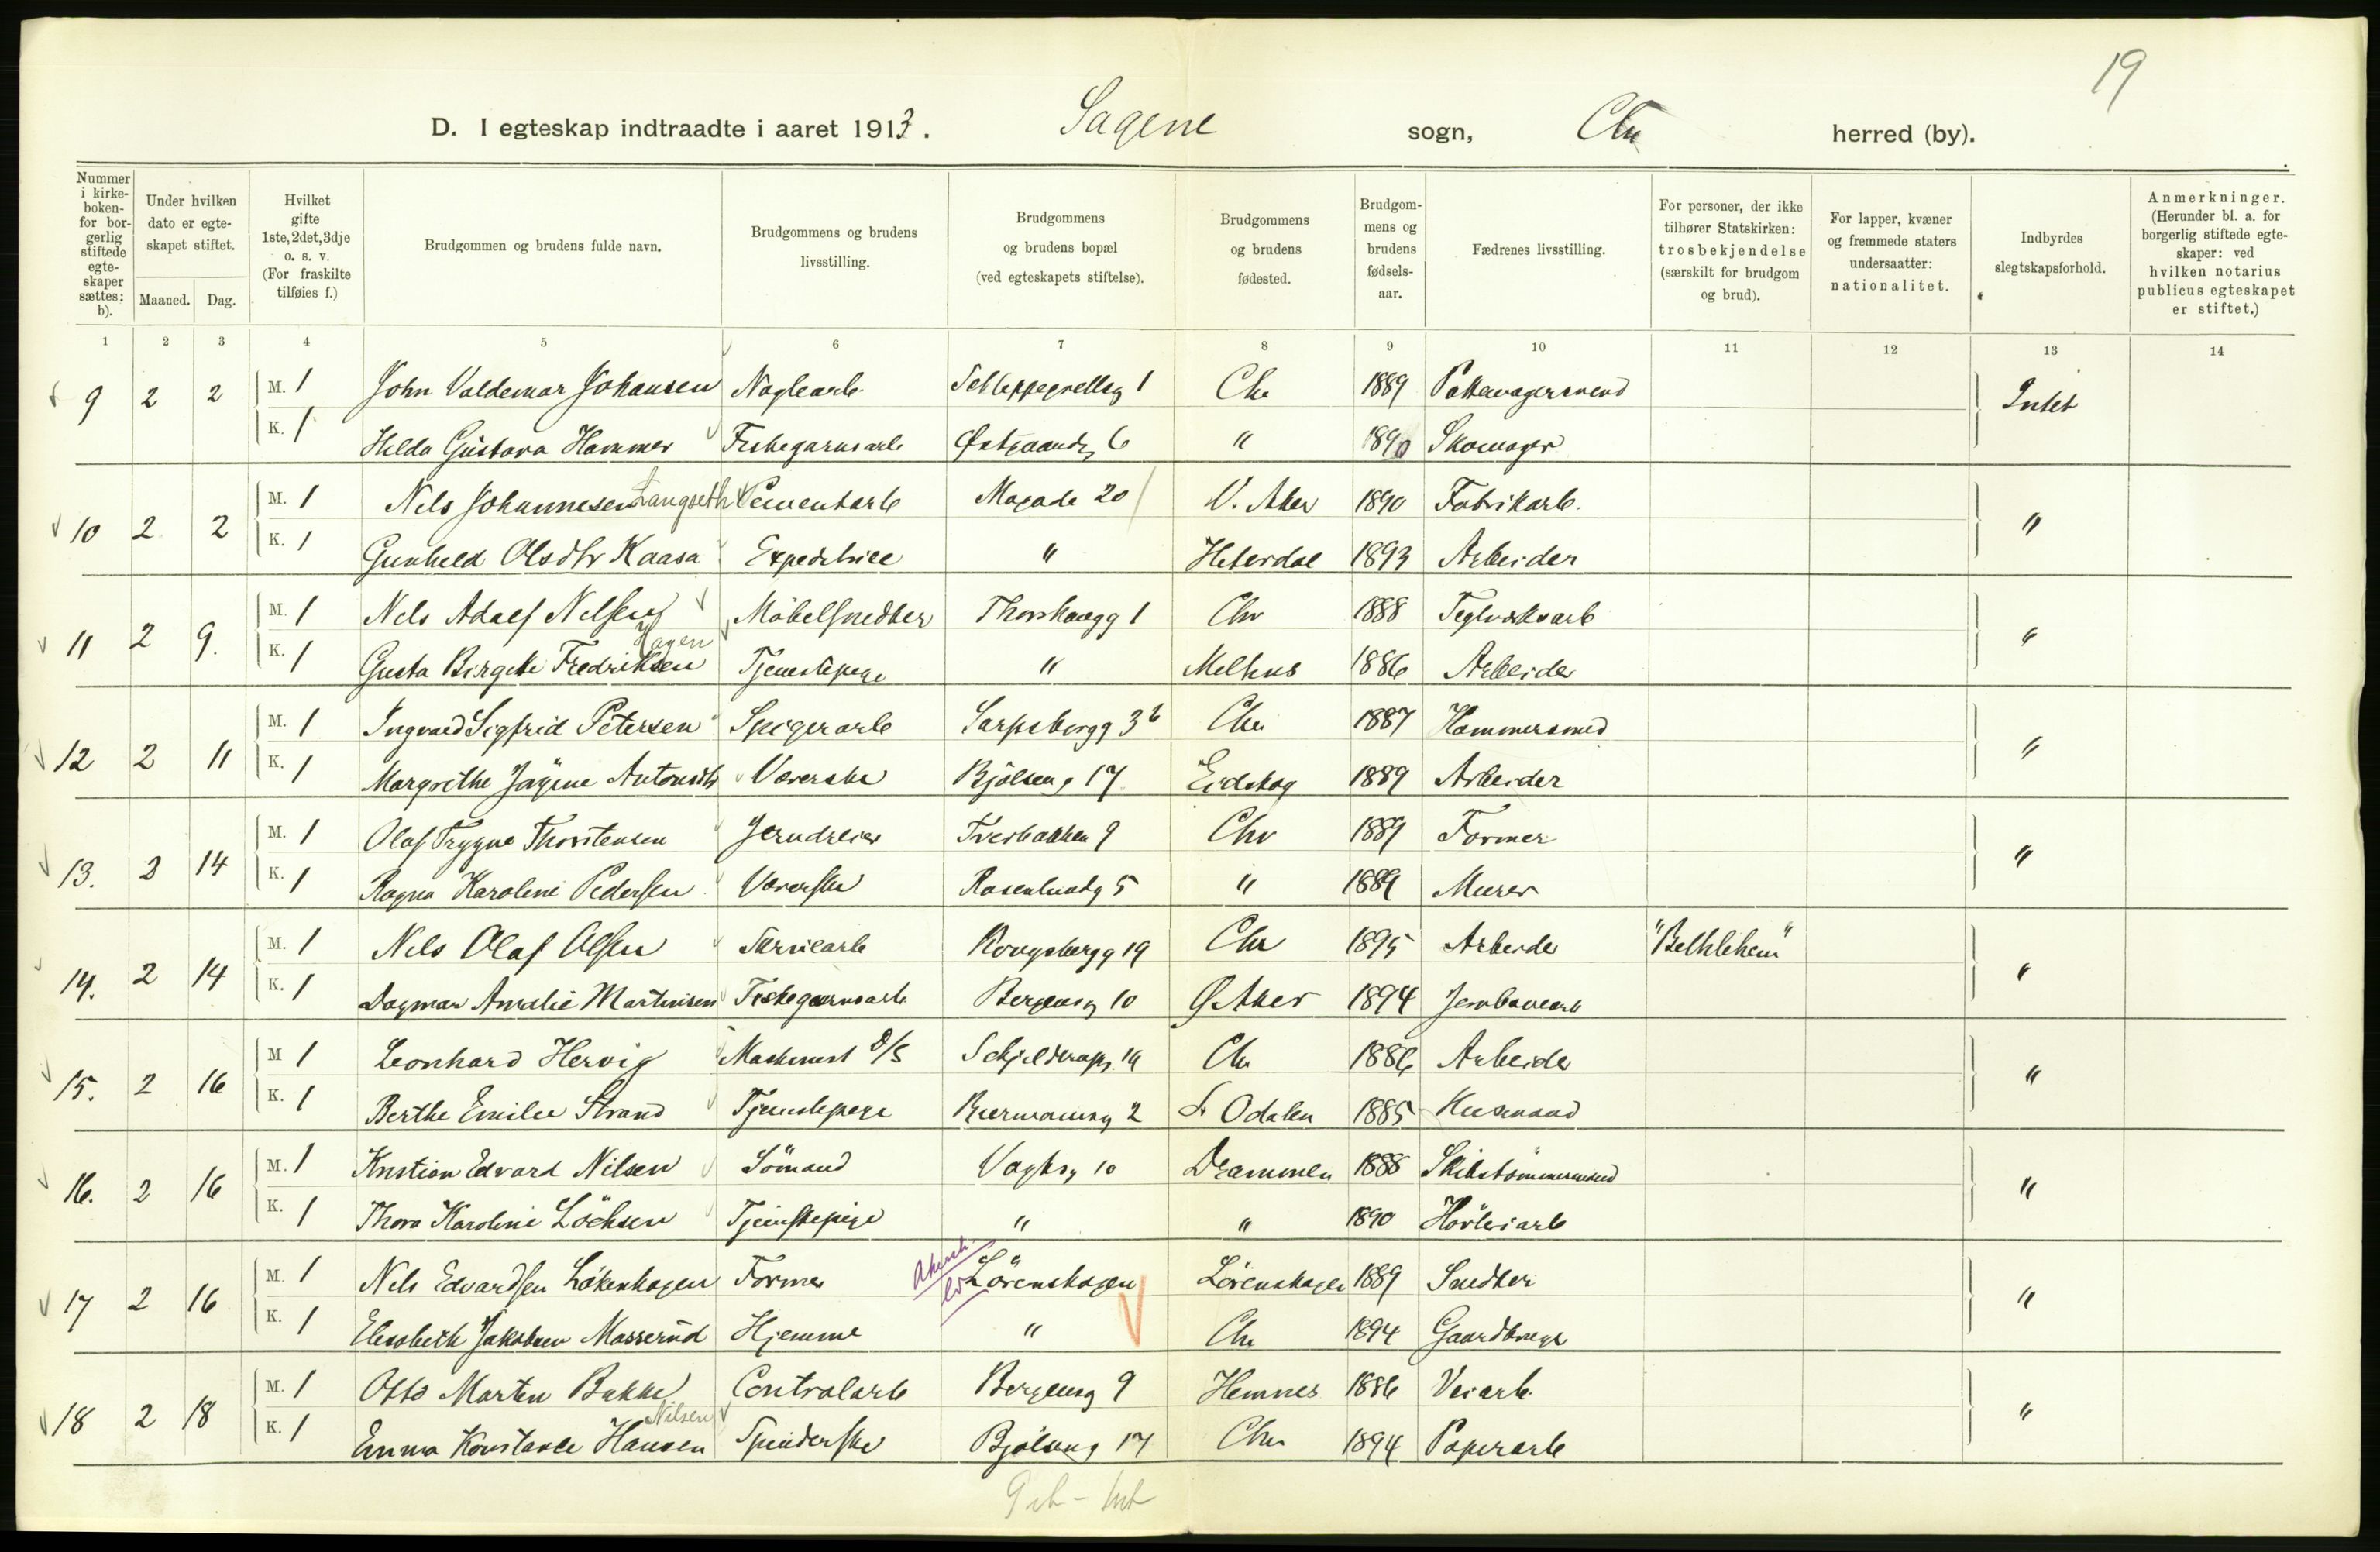 19
D. I egteskap indtraadte i aaret 1913. Sagene sogn, Chra herred (by).
Nummer i kirke-boken- for bor-gerlig stiftede egte-skaper sættes: b).
Under hvilken dato er egte-skapet stiftet.
Maaned. Dag.
Hvilket gifte 1ste, 2det, 3dje o. s. v. (For fraskilte tilføies f.)
Brudgommen og brudens fulde navn.
Brudgommens og brudens livsstilling.
Brudgommens og brudens bopæl (ved egteskapets stiftelse).
Brudgommens og brudens fødested.
Brudgom-mens og brudens fødsels-aar.
Fædrenes livsstilling.
For personer, der ikke tilhører Statskirken: trosbekjendelse (særskilt for brudgom og brud).
For lapper, kvæner og fremmede staters undersaatter: nationalitet.
Indbyrdes slegtskapsforhold.
Anmerkninger. (Herunder bl. a. for borgerlig stiftede egte-skaper: ved hvilken notarius publicus egteskapet er stiftet.)
1 2 3 4 5 6 7 8 9 10 11 12 13 14
9 2 2 M. 1 John Valdemar Johansen Naglearb. Schleppegrellsg 1 Chr 1889 Pottemagersvend Intet
K. 1 Hilda Gustava Hammer Fiskegarnsarb Østgaardsg 6 " 1890 Skomager
10 2 2 M. 1 Nils Johannesen Langseth Cementarb Mogade 20 V. Aker 1890 Fabrikarb. "
K. 1 Gunhild Olsdtr Kaasa Expeditrice " Hiterdal 1893 Arbeider
11 2 9. M. 1 Nils Adolf Nilsen Möbelsnedker Thorshaugg 1 Chr 1888 Teglverksarb "
K. 1 Gusta Birgitte Fredriksen Hagen Tjenestepige " Melhus 1886 Arbeider
12 2 11 M. 1 Ingvald Sigfrid Petersen Spigerarb Sarpsborgg 3b Chr 1887 Hammersmed "
K. 1 Margrethe Jörgine Antonsdtr Væverske Bjölseng 17 Eidskog 1889 Arbeider
13. 2 14 M. 1 Olaf Trygve Thorstensen Jerndreier Tverbakken 9 Chr 1889 Former "
K. 1 Ragna Karoline Pedersen Væverske Rosenlundg 5 " 1889 Murer
14. 2 14 M. 1 Nils Olaf Olsen Kongsbergg 19 Chr 1895 Arbeider "Bethlehem" "
K. 1 Dagmar Amalie Martinsen Fiskegarnsarb Bergensg 10 Ø. Aker 1894 Jernbanearb
15. 2 16 M 1 Leonhard Hervig Maskinist D/S Schjelderupsg. 14 Chr 1886 Arbeider "
K. 1 Berthe Emilie Strand Tjenestepige Biermannsg 2 S. Odalen 1885 Husmand
16. 2 16 M. 1 Kristian Edvard Nilsen Sömand Vogtsg 10 Drammen 1888 Skibstömmermand "
K. 1 Thora Karoline Löchsen Tjenestepige " " 1890 Høvleriarb
17 2 16 M. 1 Nils Edvardsen Lökenhagen Former Akersh. Lörenskogen Lörenskogen 1889 Snedker "
K. 1 Elisabeth Jakobsen Masserud Hjemme " Chr 1894 Gaardbruger
18 2 18 M. 1 Otto Martin Bakke Centralarb Bergensg 9 Hemnes 1886 Veiarb. "
K. 1 Emma Konstance Hansen Nilsen Spinderske Bjölseng 17 Chr 1894 Papirarb